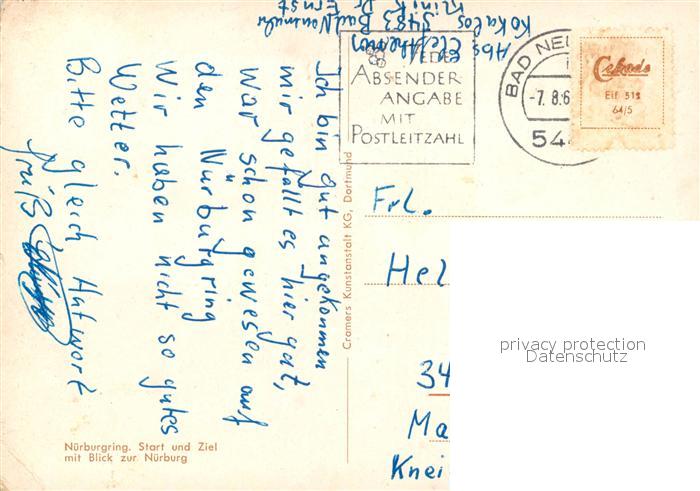 Abs
Kokalos 5483 Bad Neuenahr
Klinik Dr Ernst
JEDE
ABSENDER
ANGABE
MIT
POSTLEITZAHL
BAD NEU
-7.8.6
544
Cekade
Elf 512
64/5
Ich bin gut angekommen
mir gefällt es hier gut,
war schon gewesen auf
den Nürburgring
Wir haben nicht so gutes
Wetter.
Bitte gleich Antwort
Gruß
Cramers Kunstanstalt KG, Dortmund
Frl.
Hel
34
Ma
Knei
privacy protection
Datenschutz
Nürburgring. Start und Ziel
mit Blick zur Nürburg